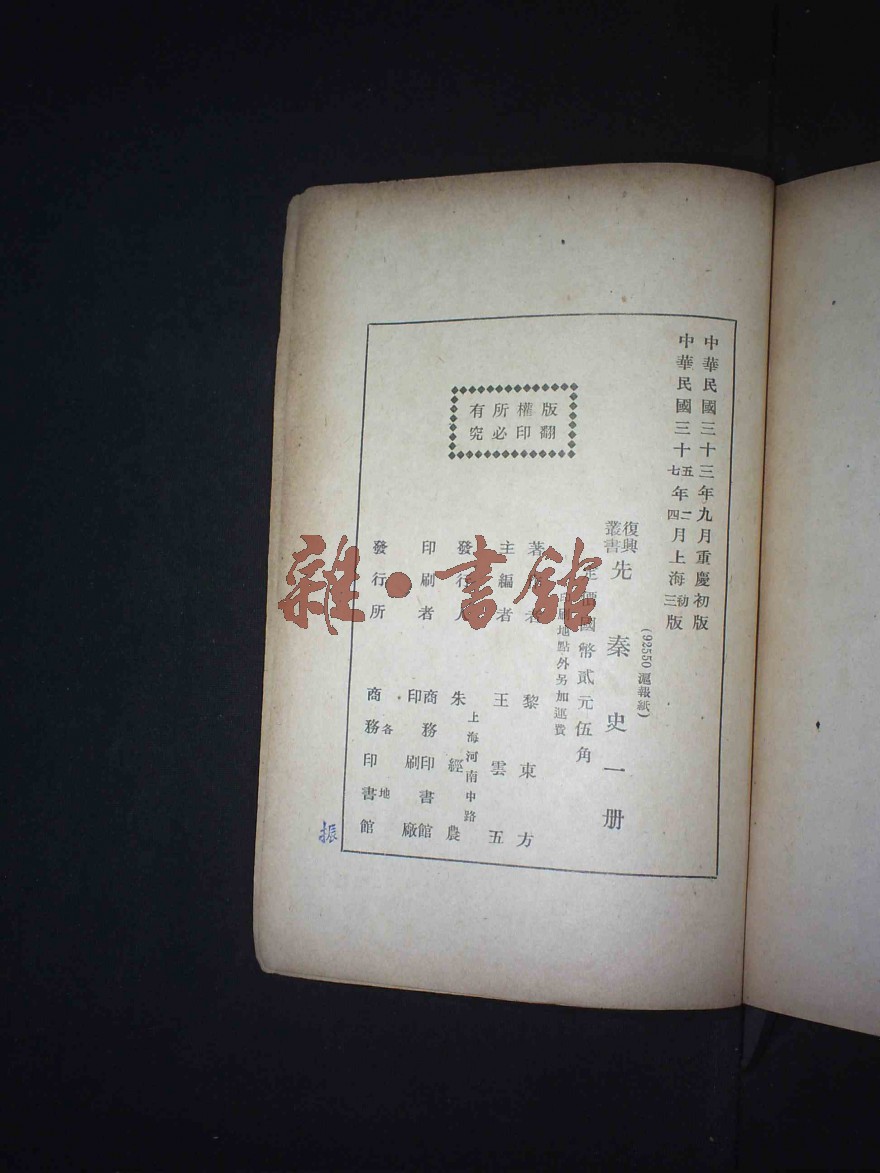 中華民國三十三年九月重慶初版
中華民國三十五七年二四月上海初三版
(92550 滬報紙)
復興叢書
先秦史一册
定價國幣貳元伍角
印刷地點外另加運費
著作者
黎東方
主編者
王雲五
上海河南中路
發行人
朱經農
印刷者
商務印書館印刷廠
發行所
各地
商務印書館
版權所有
翻印必究
振
雜·書館